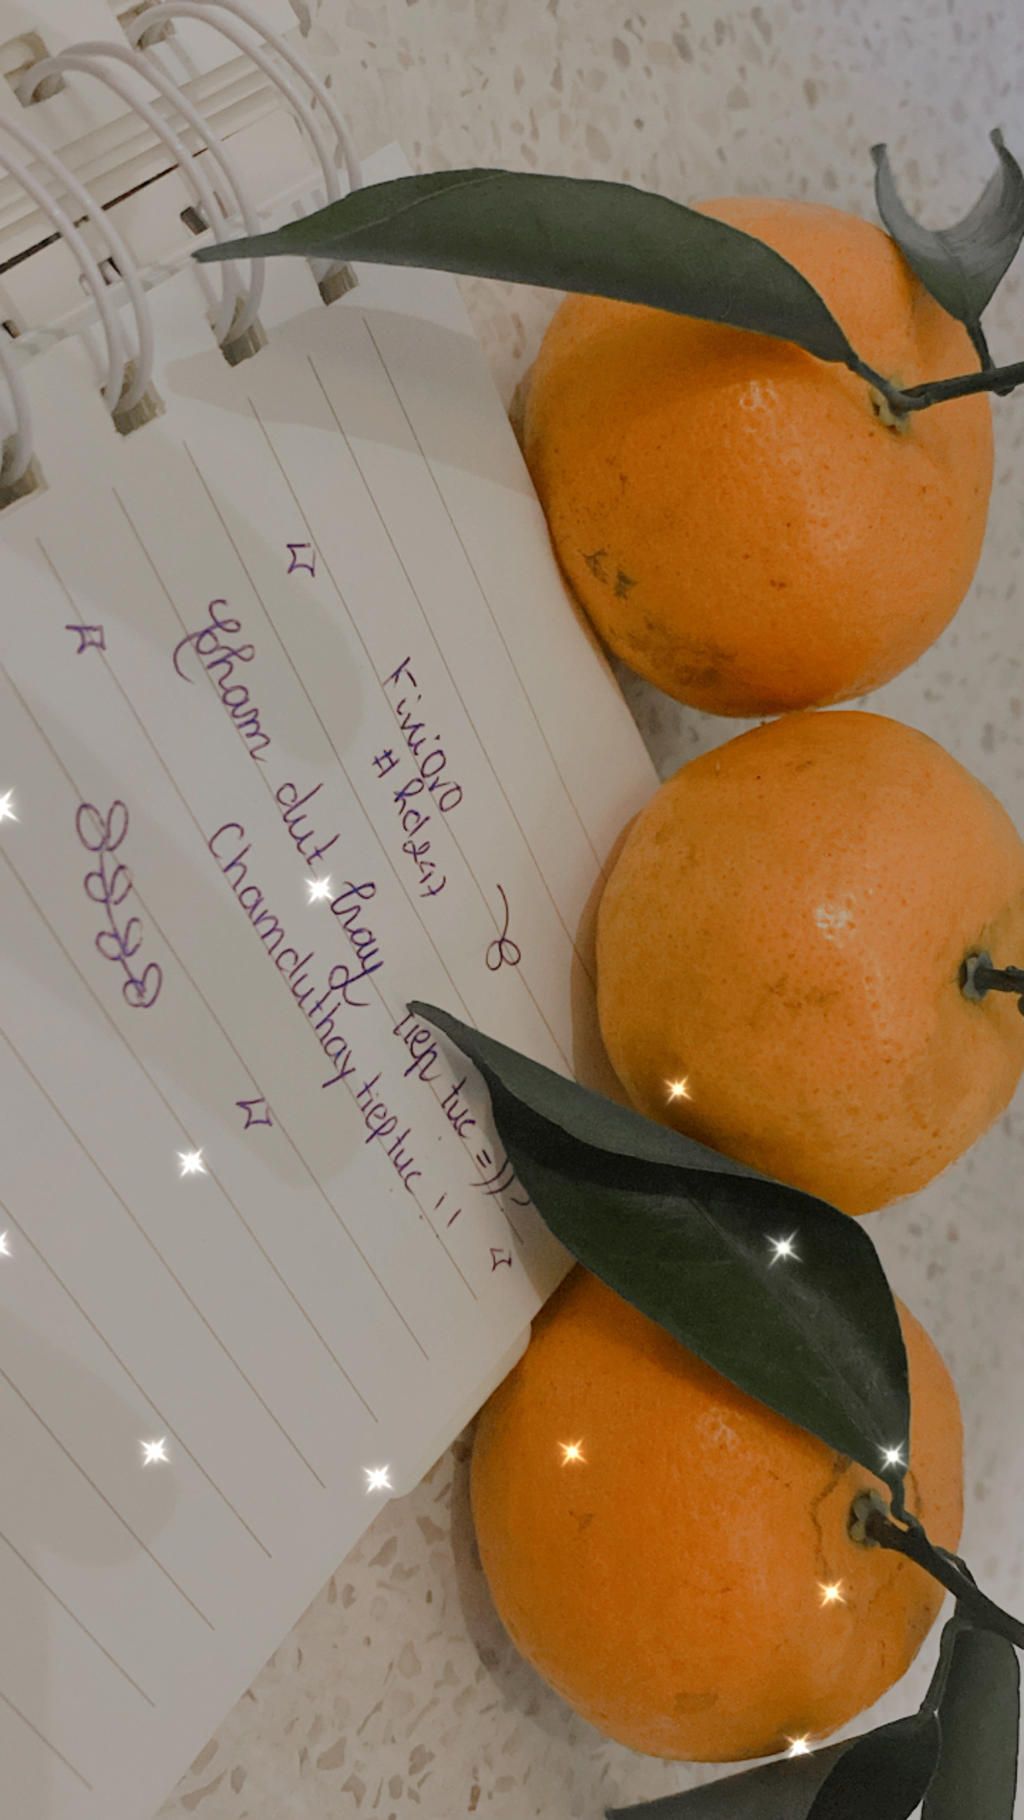 Kiwi0v0
#hd247
Cham dut hay tiep tuc =)))
Chamduthay tieptuc !!